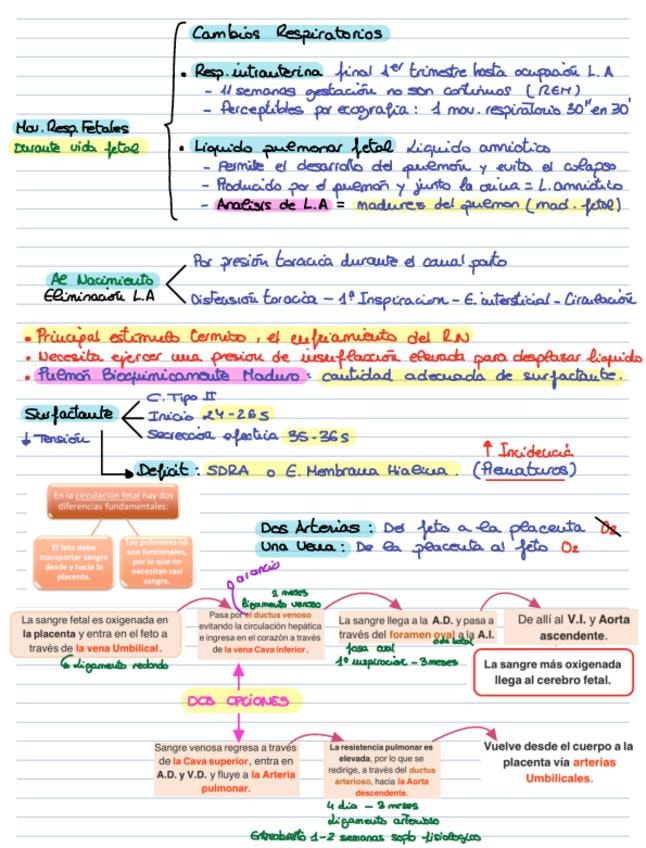 Cambios Respiratorios
• Resp. intrauterina final 1er trimestre hasta ocupación L.A
- 11 semanas gestación no son continuos (REM)
- Perceptibles por ecografia: 1 mov. respiratorio 30" en 30'
Mov. Resp. Fetales
Durante vida fetal
• Liquido pulmonar fetal Liquido amniotico
- Permite el desarrollo del pulmón y evita el colapso
- Producido por el pulmón y junto la orina = L. amniótico
- Analisis de L.A = madurez del pulmon (mad. fetal)
Al Nacimiento
Eliminación L.A
Por presión toracica durante el canal parto
Distensión toracica - 1ª Inspiracion - E. intersticial - Circulación
• Principal estimulo termico, el enfriamiento del RN
• Necesita ejercer una presion de insuflacción elevada para desplazar liquido
• Pulmón Bioquimicamente Maduro: cantidad adecuada de surfactante.
Surfactante
↓ Tensión
C. Tipo II
Inicio 24-26s
Secreción efectiva 35-36s
Deficit: SDRA o E. Membrana Hialina. (Prematuros)
↑ Incidencia
En la circulación fetal hay dos
diferencias fundamentales:
El feto debe
transportar sangre
desde y hacia la
placenta.
Los pulmones no
son funcionales,
por lo que no
necesitan casi
sangre.
Dos Arterias: Del feto a la placenta O2
Una Vena: De la placenta al feto O2
2 meses
ligamento venoso
La sangre fetal es oxigenada en
la placenta y entra en el feto a
través de la vena Umbilical.
ligamento redondo
Pasa por el ductus venoso
evitando la circulación hepática
e ingresa en el corazón a través
de la vena Cava inferior.
La sangre llega a la A.D. y pasa a
través del foramen oval a la A.I.
fosa oval
1ª inspiracion - 3 meses
De allí al V.I. y Aorta
ascendente.
La sangre más oxigenada
llega al cerebro fetal.
DOS OPCIONES
Sangre venosa regresa a través
de la Cava superior, entra en
A.D. y V.D. y fluye a la Arteria
pulmonar.
La resistencia pulmonar es
elevada, por lo que se
redirige, a través del ductus
arterioso, hacia la Aorta
descendente.
4 dia - 3 meses
ligamento arterioso
Entreabierto 1-2 semanas soplo fisiologico
Vuelve desde el cuerpo a la
placenta vía arterias
Umbilicales.